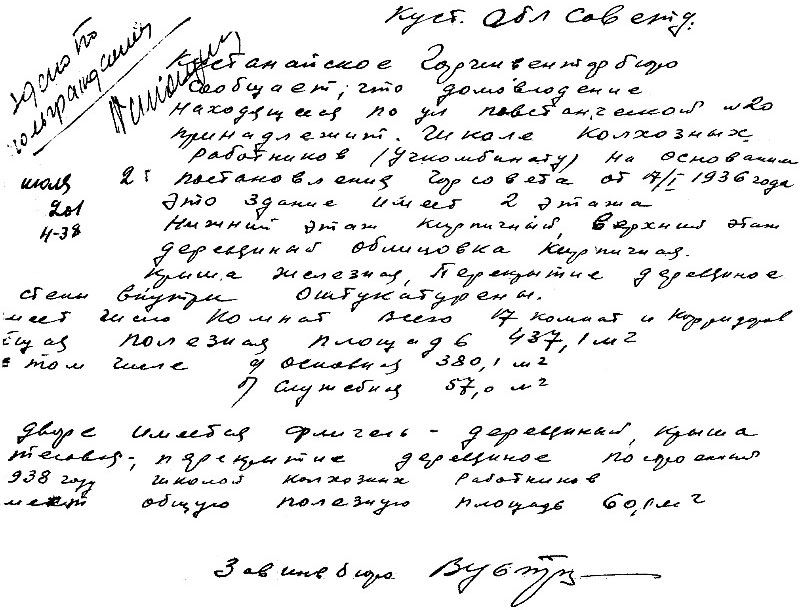 Куст. Обл совету.
Кустанайское Горинвентарбюро
сообщает, что домовладение
находящееся по ул повстанческой №20
принадлежит. Школе колхозных
работников (Учкомбинату) на основании
июля 2: постановления Горсовета от 17/I 1936 года
это здание имеет 2 этажа
4-38 Нижний этаж кирпичный, верхний этаж
деревяный облицовка кирпичная.
крыша железная, Перекрытие деревяное
стены внутри оштукатурены.
меет число комнат всего 17 комнат и корридоров
щая полезная площадь 437,1 м2
в том числе а) основная 380,1 м2
б) служебная 57,0 м2
дворе имеется флигель - деревяный, крыша
тесовая, перекрытие деревяное построеный
938 году школой колхозных работников
меет общую полезную площадь 60,1 м2
Зав инвбюро